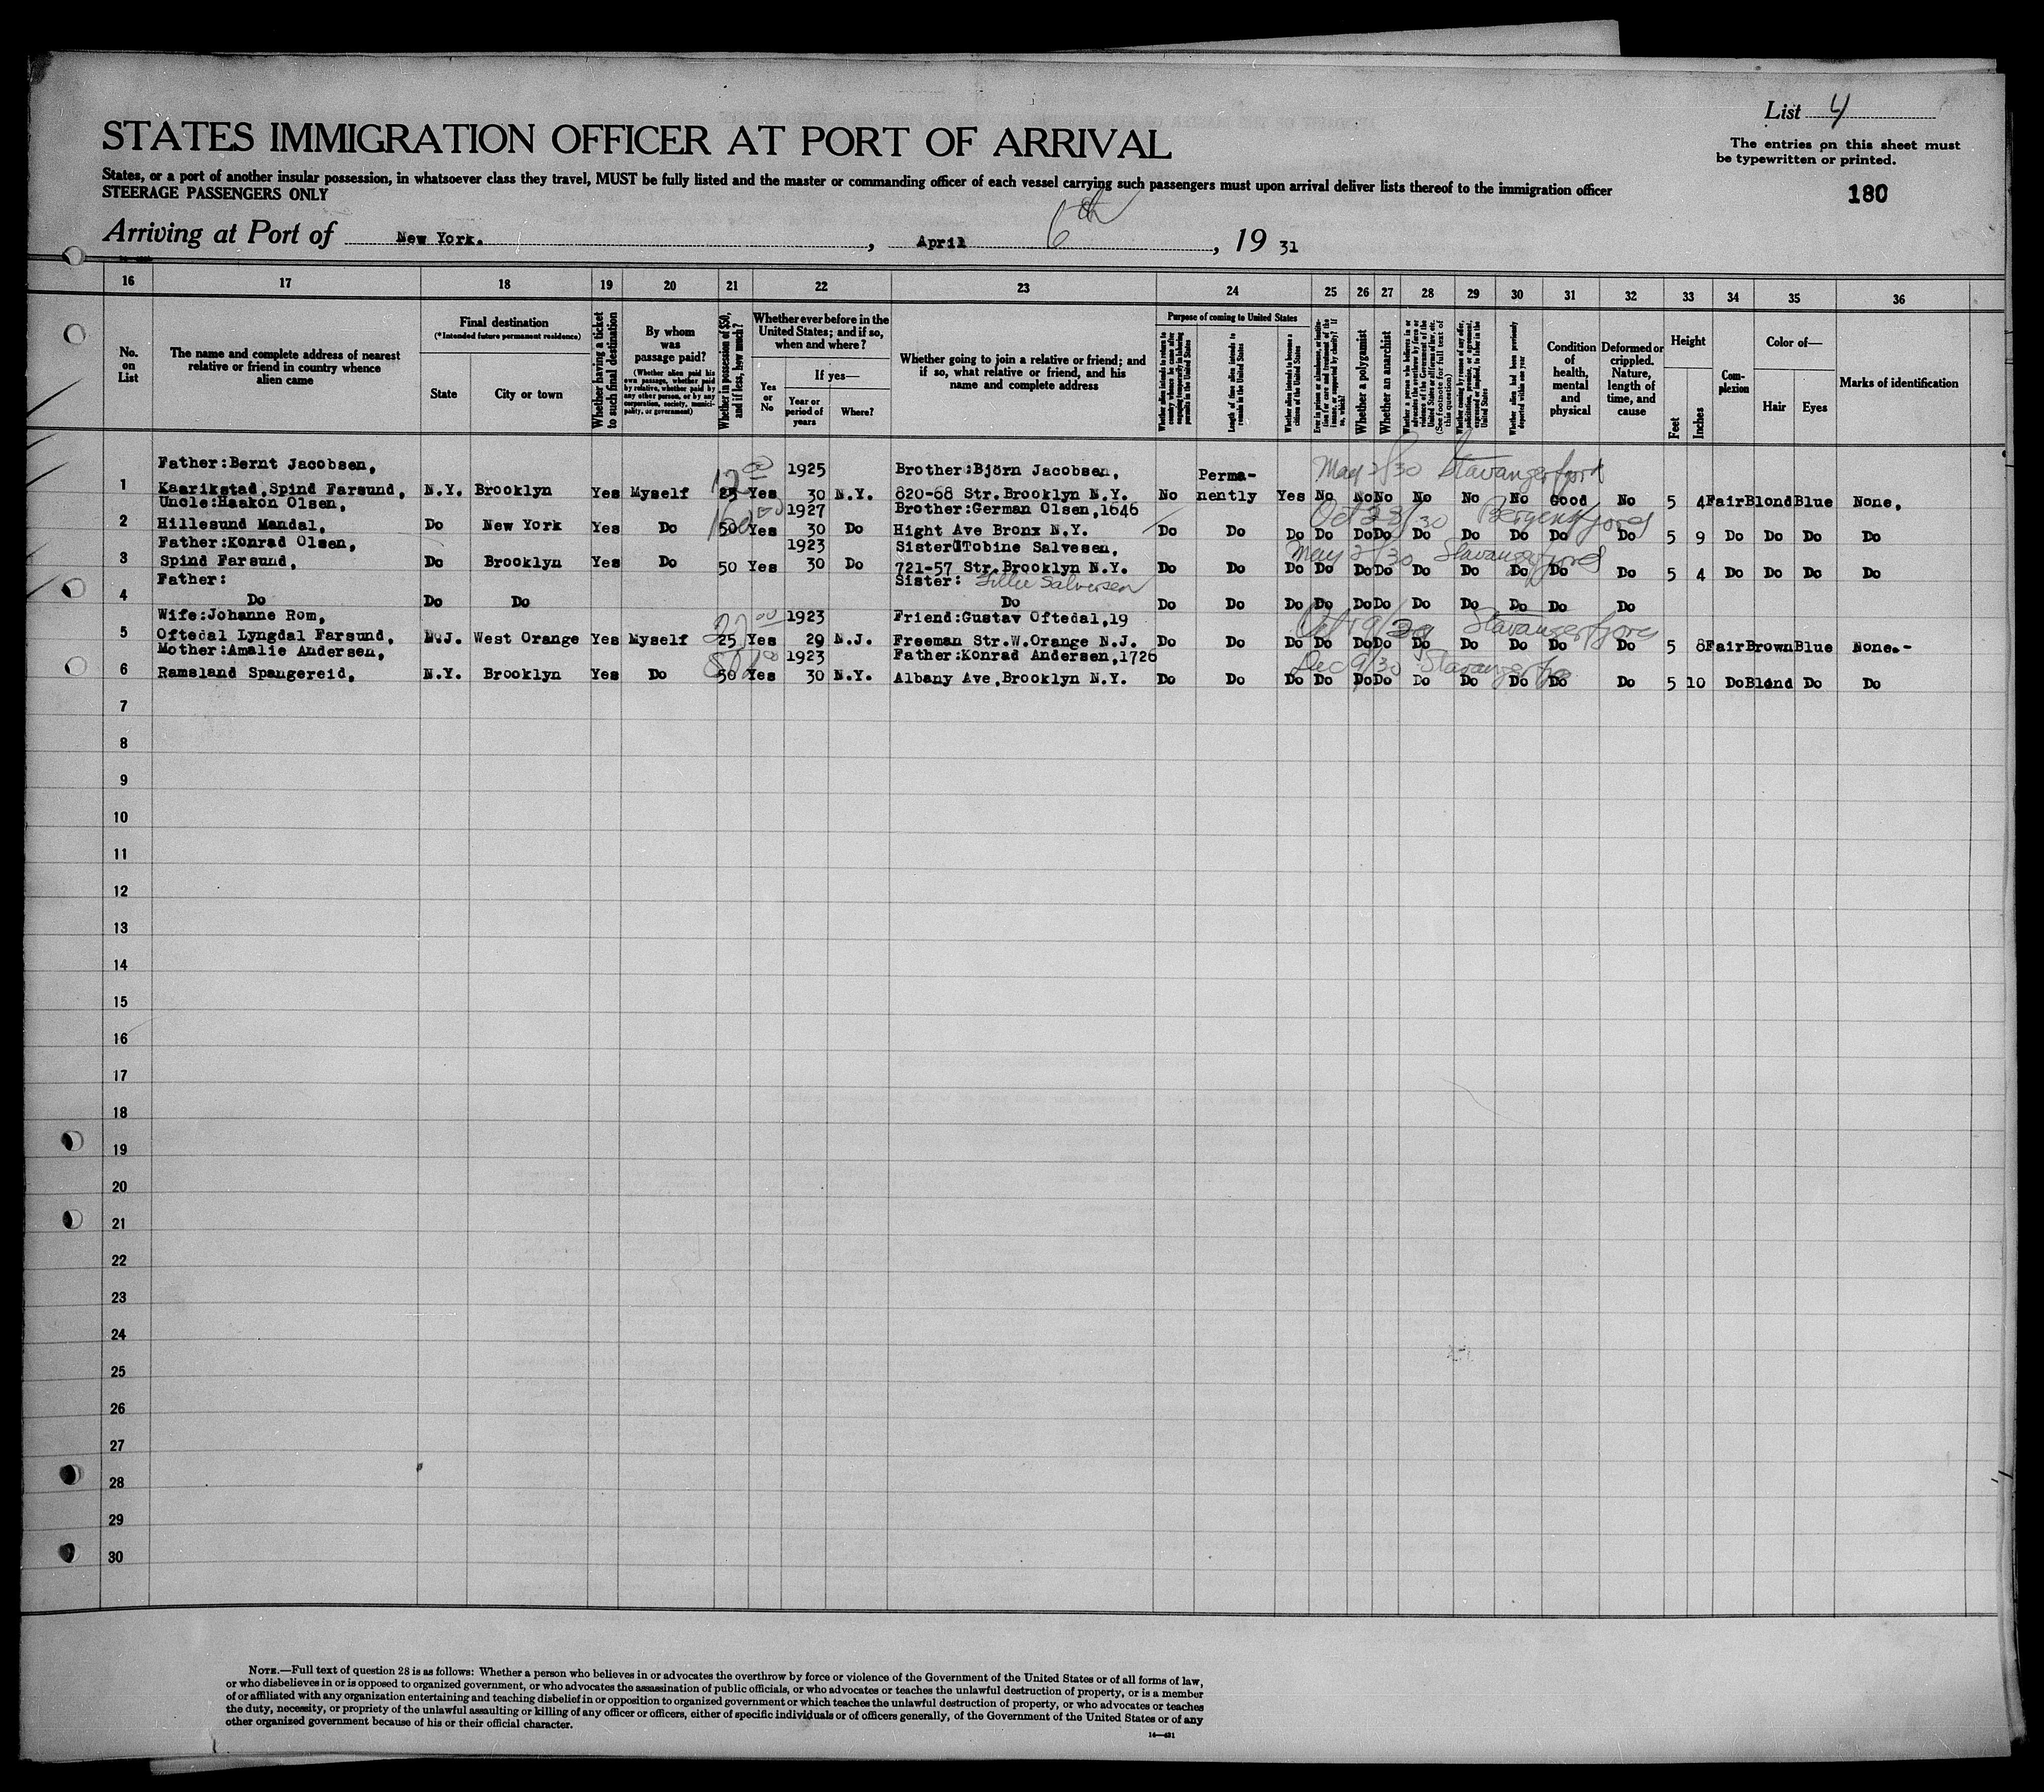 List 4
STATES IMMIGRATION OFFICER AT PORT OF ARRIVAL
The entries on this sheet must
be typewritten or printed.
States, or a port of another insular possession, in whatsoever class they travel, MUST be fully listed and the master or commanding officer of each vessel carrying such passengers must upon arrival deliver lists thereof to the immigration officer
STEERAGE PASSENGERS ONLY
180
Arriving at Port of New York. , April 6th , 19 31
16 17 18 19 20 21 22 23 24 25 26 27 28 29 30 31 32 33 34 35 36
No. on List
The name and complete address of nearest relative or friend in country whence alien came
Final destination
(*Intended future permanent residence)
State
City or town
Whether having a ticket to such final destination
By whom was passage paid?
(Whether alien paid his own passage, whether paid by relative, whether paid by any other person, or by any corporation, society, municipality, or government)
Whether in possession of $50, and if less, how much?
Whether ever before in the United States; and if so, when and where?
Yes or No
If yes—
Year or period of years
Where?
Whether going to join a relative or friend; and if so, what relative or friend, and his name and complete address
Purpose of coming to United States
Length of time alien intends to remain in the United States
Whether alien intends to become a citizen of the United States
Whether a polygamist
Whether an anarchist
(See footnote for full text of this question)
Whether alien had been previously deported within one year
Condition of health, mental and physical
Deformed or crippled. Nature, length of time, and cause
Height
Feet
Inches
Complexion
Color of—
Hair
Eyes
Marks of identification
Father:Bernt Jacobsen, 1925 Brother:Björn Jacobsen, Perma- May 2/30 Stavangerfjord
1 Kaarikstad,Spind Farsund, N.Y. Brooklyn Yes Myself 25 Yes 30 N.Y. 820-68 Str.Brooklyn N.Y. No nently Yes No No No No No No Good No 5 4 Fair Blond Blue None.
Uncle:Haakon Olsen, 1927 Brother:German Olsen,1646 Oct 23/30 Bergensfjord
2 Hillesund Mandal. Do New York Yes Do 50 Yes 30 Do Hight Ave Bronx N.Y. Do Do Do Do Do Do Do Do Do Do Do 5 9 Do Do Do Do
Father:Konrad Olsen, 1923 Sister:Tobine Salvesen, May 2/30 Stavangerfjord
3 Spind Farsund. Do Brooklyn Yes Do 50 Yes 30 Do 721-57 Str.Brooklyn N.Y. Do Do Do Do Do Do Do Do Do Do Do 5 4 Do Do Do Do
Father: Sister: Salversen
4 Do Do Do Do Do Do Do Do Do Do Do Do Do Do Do
Wife:Johanne Rom, 1923 Friend:Gustav Oftedal,19 Oct 19/29 Stavangerfjord
5 Oftedal Lyngdal Farsund. N.J. West Orange Yes Myself 25 Yes 29 N.J. Freeman Str.W.Orange N.J. Do Do Do Do Do Do Do Do Do Do Do 5 8 Fair Brown Blue None.-
Mother:Amalie Andersen, 1923 Father:Konrad Andersen,1726 Dec 9/30
6 Ramsland Spangereid. N.Y. Brooklyn Yes Do 50 Yes 30 N.Y. Albany Ave.Brooklyn N.Y. Do Do Do Do Do Do Do Do Do Do Do 5 10 Do Blond Do Do
7
8
9
10
11
12
13
14
15
16
17
18
19
20
21
22
23
24
25
26
27
28
29
30
NOTE.—Full text of question 28 is as follows: Whether a person who believes in or advocates the overthrow by force or violence of the Government of the United States or of all forms of law,
or who disbelieves in or is opposed to organized government, or who advocates the assassination of public officials, or who advocates or teaches the unlawful destruction of property, or is a member
of or affiliated with any organization entertaining and teaching disbelief in or opposition to organized government or which teaches the unlawful destruction of property, or who advocates or teaches
the duty, necessity, or propriety of the unlawful assaulting or killing of any officer or officers, either of specific individuals or of officers generally, of the Government of the United States or of any
other organized government because of his or their official character.